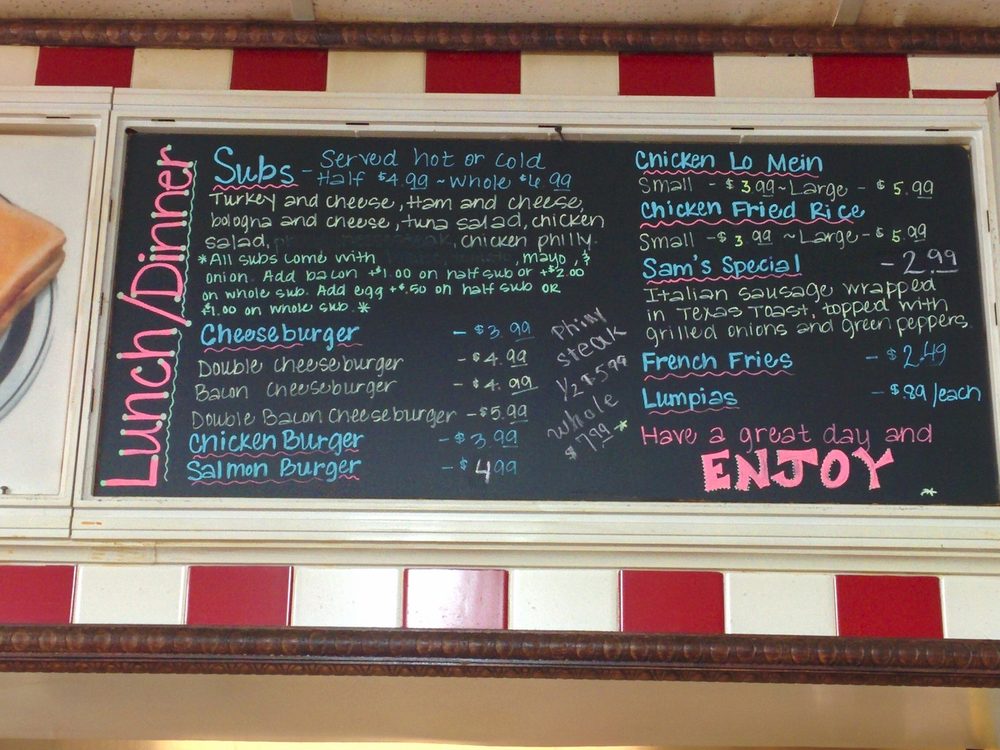 Lunch/Dinner
Subs - Served hot or cold
Half $4.99 ~ Whole $6.99
Turkey and cheese, Ham and cheese,
bologna and cheese, tuna salad, chicken
salad, chicken philly.
*All subs come with , mayo, &
onion. Add bacon +$1.00 on half sub or +$2.00
on whole sub. Add egg +$.50 on half sub or
$1.00 on whole sub. *
Cheeseburger - $3.99
Double Cheeseburger - $4.99
Bacon Cheeseburger - $4.99
Double Bacon Cheeseburger - $5.99
Chicken Burger - $3.99
Salmon Burger - $4.99
Philly
steak
1/2 $5.99
whole
$7.99 *
Chicken Lo Mein
Small - $3.99 ~ Large - $5.99
Chicken Fried Rice
Small - $3.99 ~ Large - $5.99
Sam's Special - 2.99
Italian sausage wrapped
in Texas Toast, topped with
grilled onions and green peppers.
French Fries - $2.49
Lumpias - $.89/each
Have a great day and
ENJOY